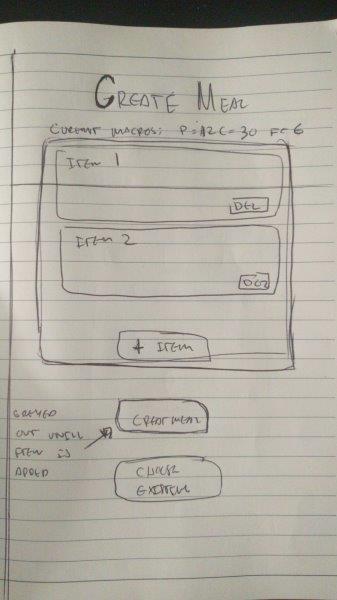 CREATE MEAL
CURRENT MACROS: P=12 C=30 F=6
ITEM 1
DEL
ITEM 2
DEL
+ ITEM
GREYED
OUT UNTILL
ITEM IS
ADDED
CREAT MEAL
CHOOSE
EXISTING